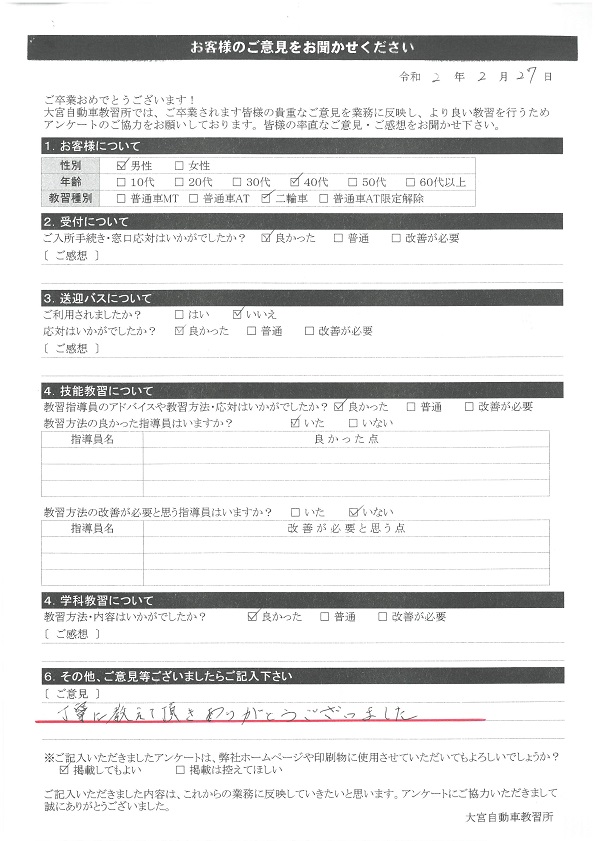 お客様のご意見をお聞かせください
令和 2 年 2 月 27 日
ご卒業おめでとうございます!
大宮自動車教習所では、ご卒業されます皆様の貴重なご意見を業務に反映し、より良い教習を行うため
アンケートのご協力をお願いしております。皆様の率直なご意見・ご感想をお聞かせ下さい。
1. お客様について
性別 ☑男性 □女性
年齢 □10代 □20代 □30代 ☑40代 □50代 □60代以上
教習種別 □普通車MT □普通車AT ☑二輪車 □普通車AT限定解除
2. 受付について
ご入所手続き・窓口応対はいかがでしたか? ☑良かった □普通 □改善が必要
[ ご感想 ]
3. 送迎バスについて
ご利用されましたか? □はい ☑いいえ
応対はいかがでしたか? ☑良かった □普通 □改善が必要
[ ご感想 ]
4. 技能教習について
教習指導員のアドバイスや教習方法・応対はいかがでしたか? ☑良かった □普通 □改善が必要
教習方法の良かった指導員はいますか? ☑いた □いない
指導員名 良かった点
教習方法の改善が必要と思う指導員はいますか? □いた ☑いない
指導員名 改善が必要と思う点
4. 学科教習について
教習方法・内容はいかがでしたか? ☑良かった □普通 □改善が必要
[ ご感想 ]
6. その他、ご意見等ございましたらご記入下さい
[ ご意見 ]
丁寧に教えて頂きありがとうございました
※ご記入いただきましたアンケートは、弊社ホームページや印刷物に使用させていただいてもよろしいでしょうか?
☑掲載してもよい □掲載は控えてほしい
ご記入いただきました内容は、これからの業務に反映していきたいと思います。アンケートにご協力いただきまして
誠にありがとうございました。
大宮自動車教習所